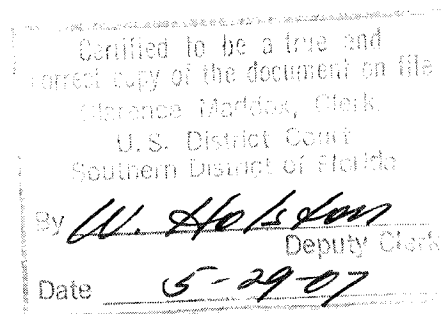 Certified to be a true and
correct copy of the document on file
Clarence Maddox, Clerk
U.S. District Court
Southern District of Florida
By W. Holston
Deputy Clerk
Date 5-29-07